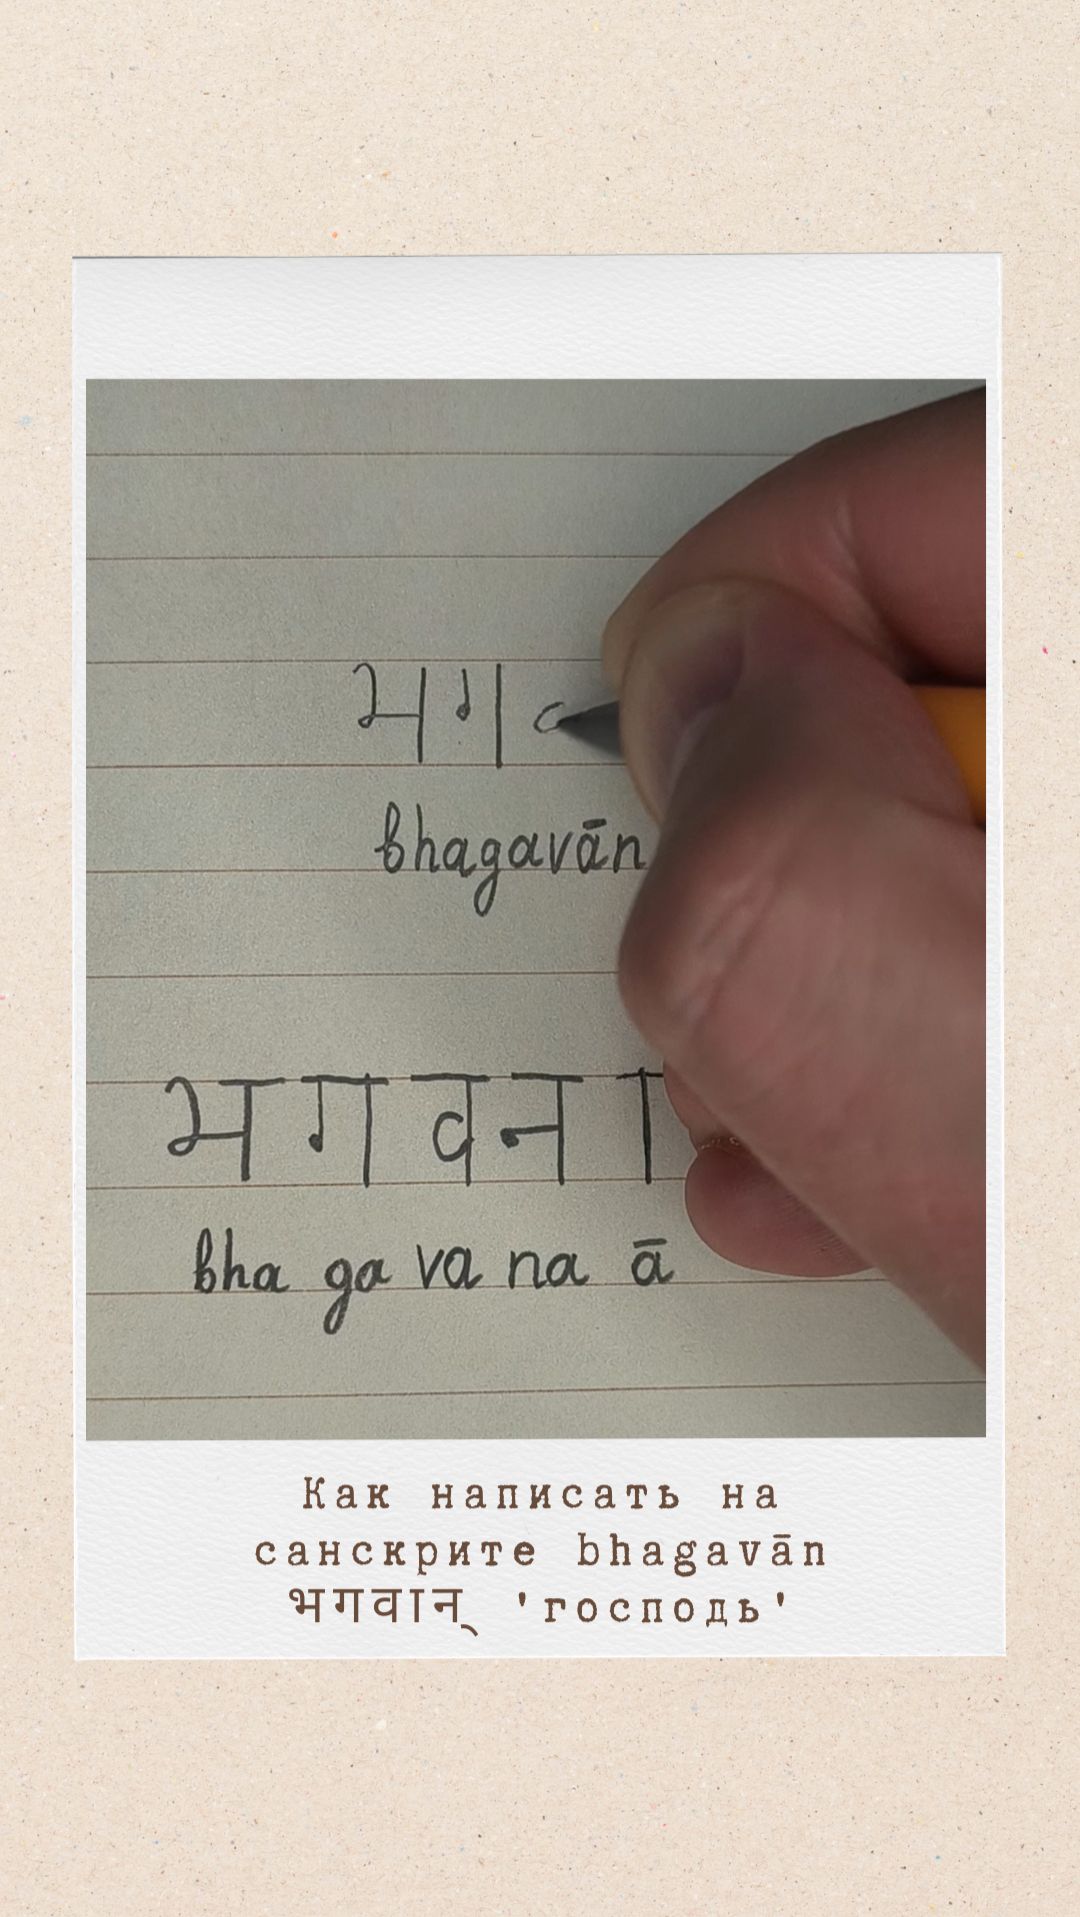 भग
bhagavān
भ ग व न ा
bha ga va na ā
Как написать на
санскрите bhagavān
भगवान् 'господь'